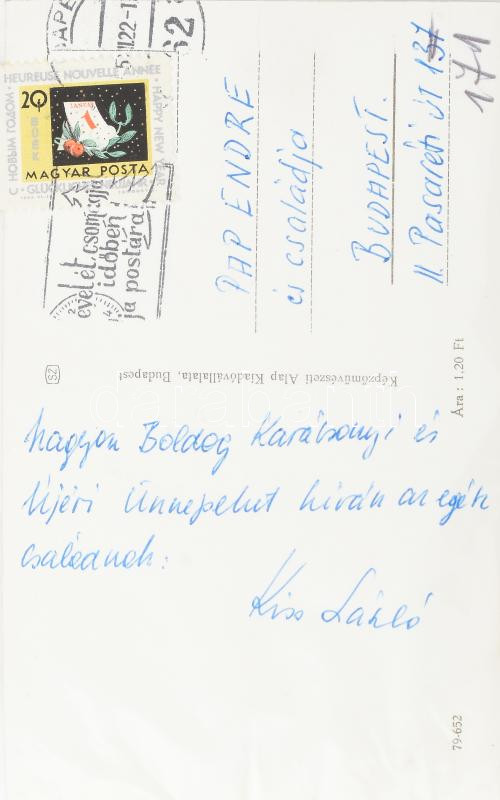 Nagyon Boldog Karácsonyi és
Újévi Ünnepeket kíván az egész
családnak:
Kiss László
PAP ENDRE
és családja
BUDAPEST.
II Pasaréti út 137
171
Képzőművészeti Alap Kiadóvállalata, Budapest
SZ
Ára: 1,20 Ft
79-652
HEUREUSE NOUVELLE ANNÉE
HAPPY NEW YEAR
С НОВЫМ ГОДОМ
20
JANUÁR
1
MAGYAR POSTA
62
levelét, csomagja
időben
ja postára!